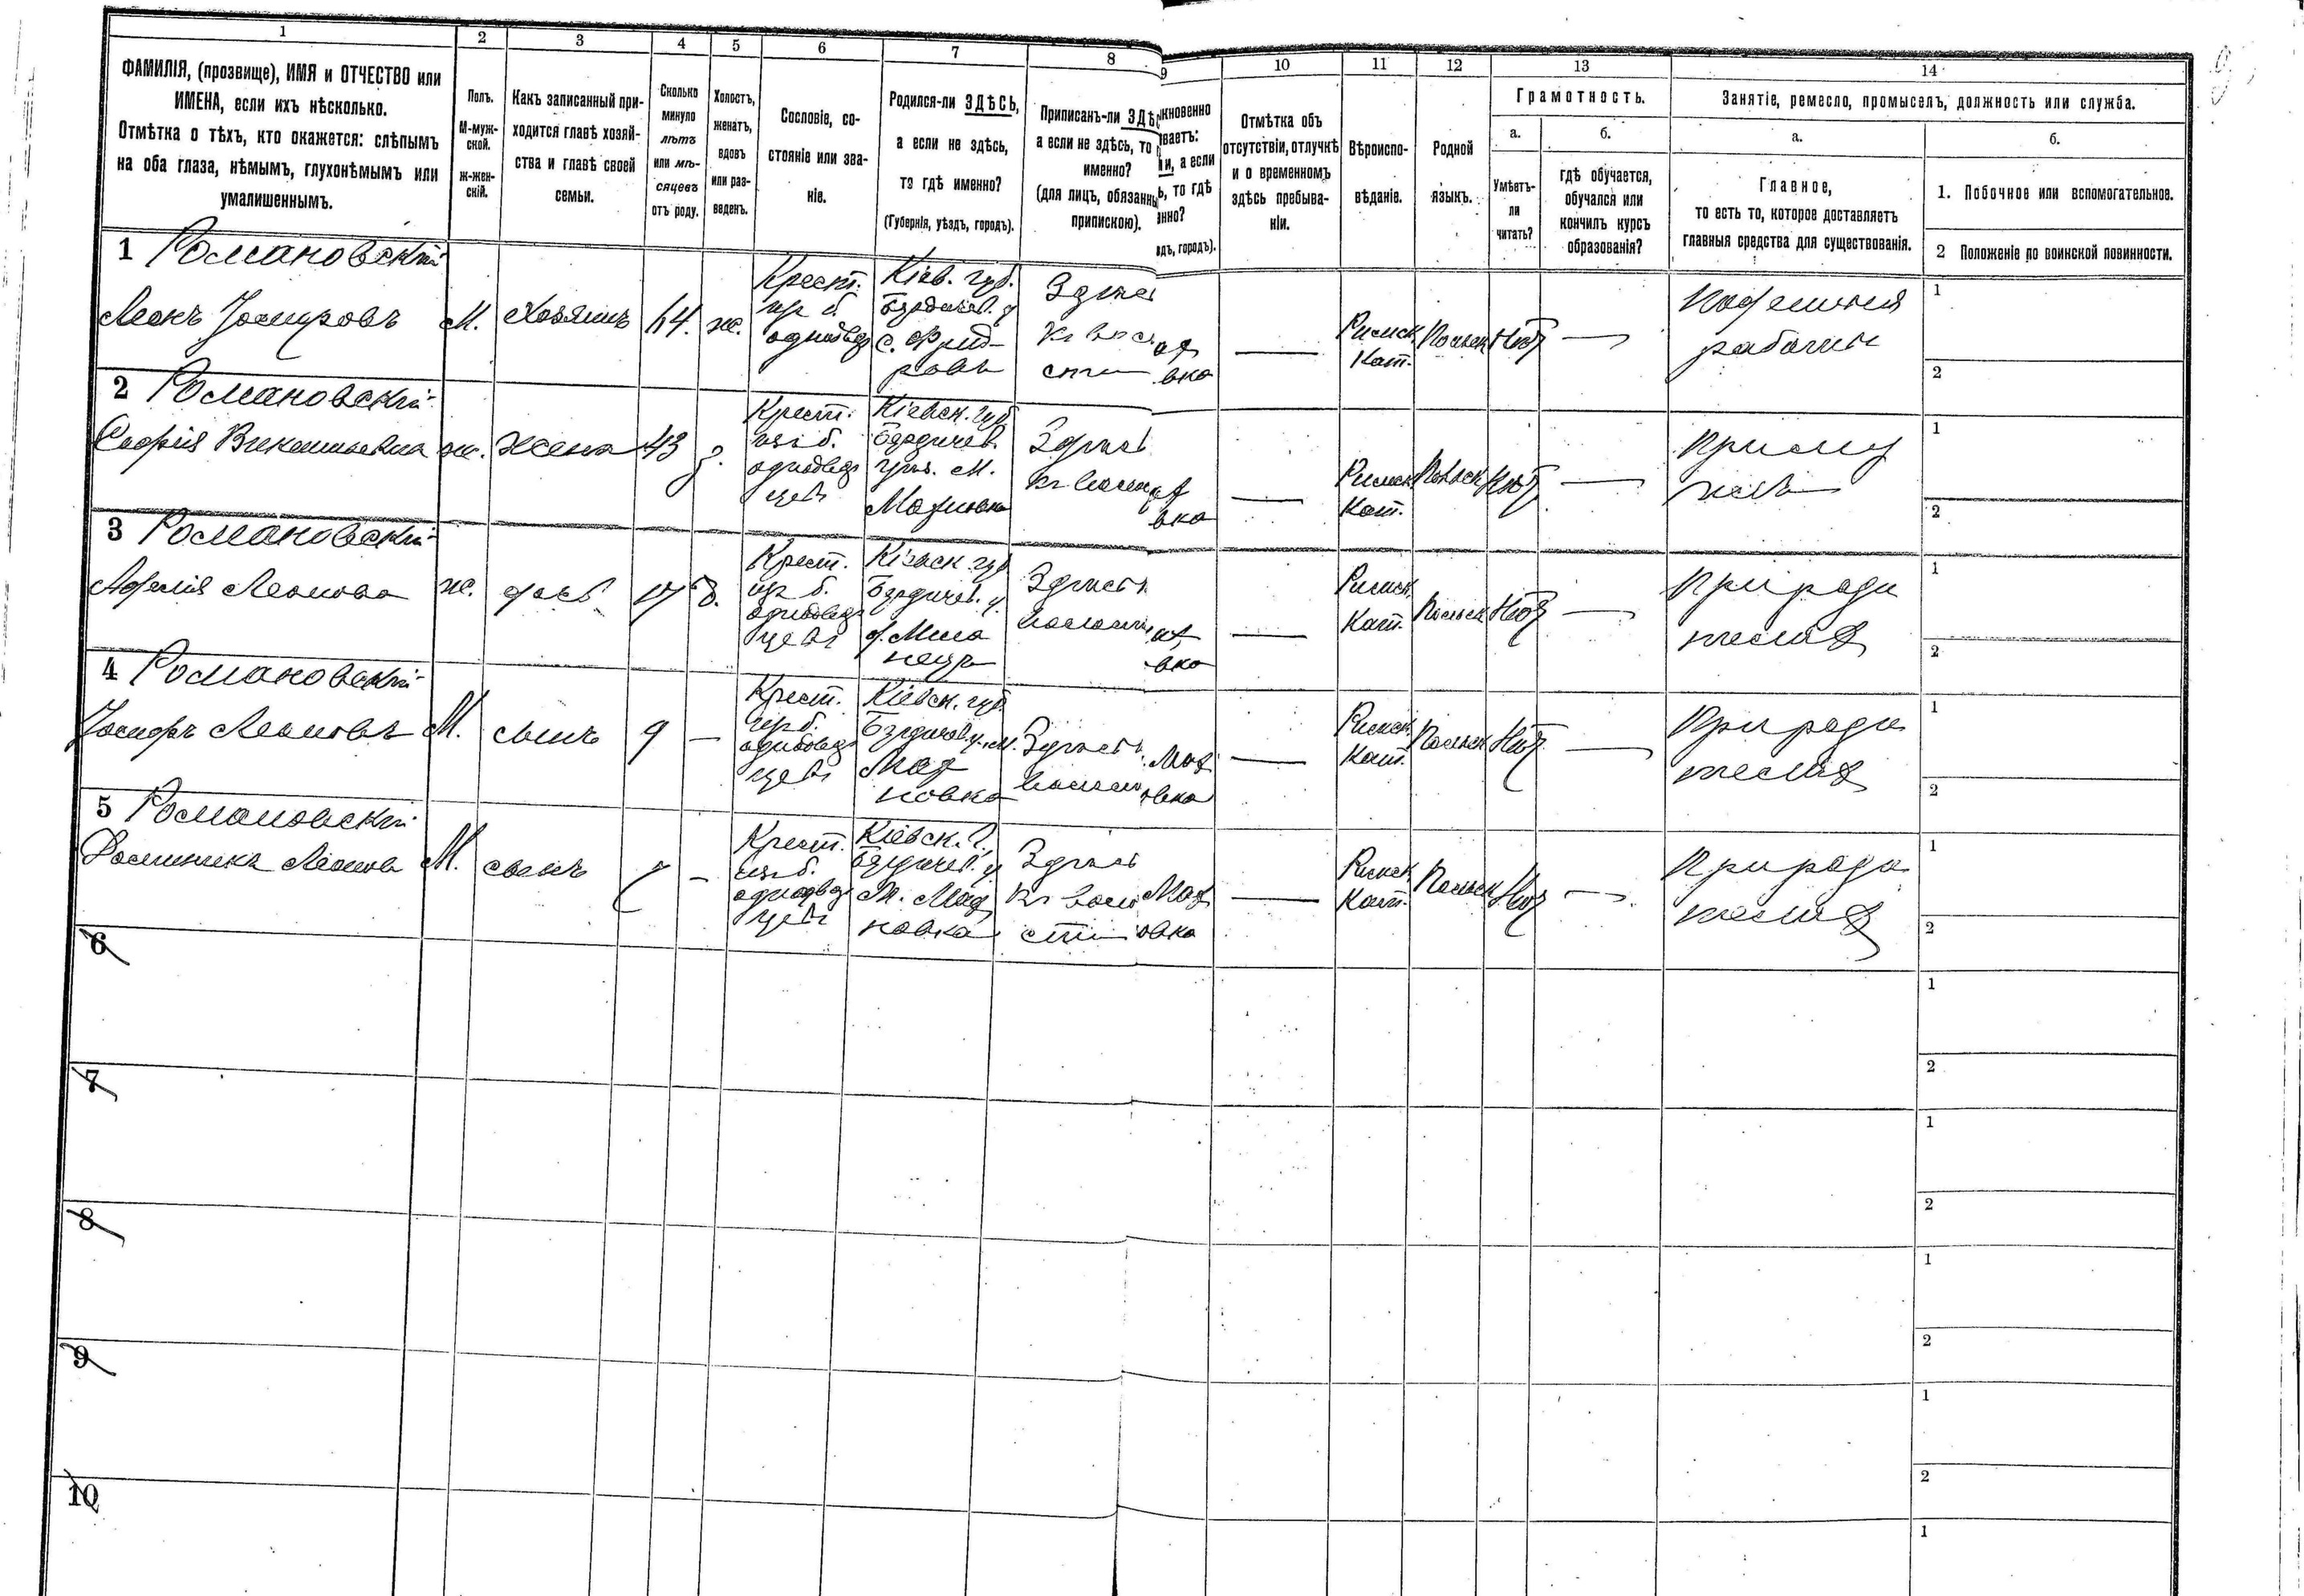 1
2
3
4
5
6
7
8
9
10
11
12
13
14
ФАМИЛІЯ, (прозвище), ИМЯ и ОТЧЕСТВО или
ИМЕНА, если ихъ нѣсколько.
Отмѣтка о тѣхъ, кто окажется: слѣпымъ
на оба глаза, нѣмымъ, глухонѣмымъ или
умалишеннымъ.
Полъ.
М-муж-
ской.
Ж-жен-
скій.
Какъ записанный при-
ходится главѣ хозяй-
ства и главѣ своей
семьи.
Сколько
минуло
лѣтъ
или мѣ-
сяцевъ
отъ роду.
Холостъ,
женатъ,
вдовъ
или раз-
веденъ.
Сословіе, со-
стояніе или зва-
ніе.
Родился-ли ЗДѢСЬ,
а если не здѣсь,
то гдѣ именно?
(Губернія, уѣздъ, городъ).
Приписанъ-ли ЗДѢС
а если не здѣсь, то
именно?
(для лицъ, обязанны
припискою).
кновенно
ваетъ:
и, а если
ь, то гдѣ
нно?
здъ, городъ).
Отмѣтка объ
отсутствіи, отлучкѣ
и о временномъ
здѣсь пребыва-
ніи.
Вѣроиспо-
вѣданіе.
Родной
языкъ.
Грамотность.
а.
б.
Умѣетъ-
ли
читать?
гдѣ обучается,
обучался или
кончилъ курсъ
образованія?
Занятіе, ремесло, промыселъ, должность или служба.
а.
б.
Главное,
то есть то, которое доставляетъ
главныя средства для существованія.
1. Побочное или вспомогательное.
2 Положеніе по воинской повинности.
1 Романовскій
Леонъ Іосифовъ М. Хозяинъ ж.
Крест.
из б.
Кіев. губ.
Бердичев. у
Римск
Кат.
Польск Нѣт —
рабочій
1
2
2 Романовскій
Софія Викентьевна ж. жена 43 з.
Крест.
изъ б.
однодвор
цевъ
Кіевск. губ
Бердичев.
м.
Махновка
Здѣсь
вка
Римск
Кат.
Польск Нѣт —
При му
жѣ
1
2
3 Романовскій
Леонова ж. дочь 17 д.
Крест.
из б.
однодвор
цевъ
Кіевск. губ
Бердичев. у.
Здѣсь
вка
Римск.
Кат.
Польск Нѣт —
При роди
теляхъ
1
2
4 Романовскій
Іосифъ Леоновъ М. сынъ 9 —
Крест.
из б.
однодвор
цевъ
Кіевск. губ.
Бердичев у. м.
Мах
новка
Здѣсь
Мах
овка
Римск.
Кат.
Польск Нѣт —
При роди
теляхъ
1
2
5 Романовскій
Доминикъ Леонов М. сынъ —
Крест.
изъ б.
однодвор
цевъ
Кіевск. г.
Бердичев. у
М. Мах
новка
Здѣсь
Мах
овка
Римск
Кат.
Польск Нѣт —
При роди
теляхъ
1
2
6
1
2
7
1
2
8
1
2
9
1
2
10
1